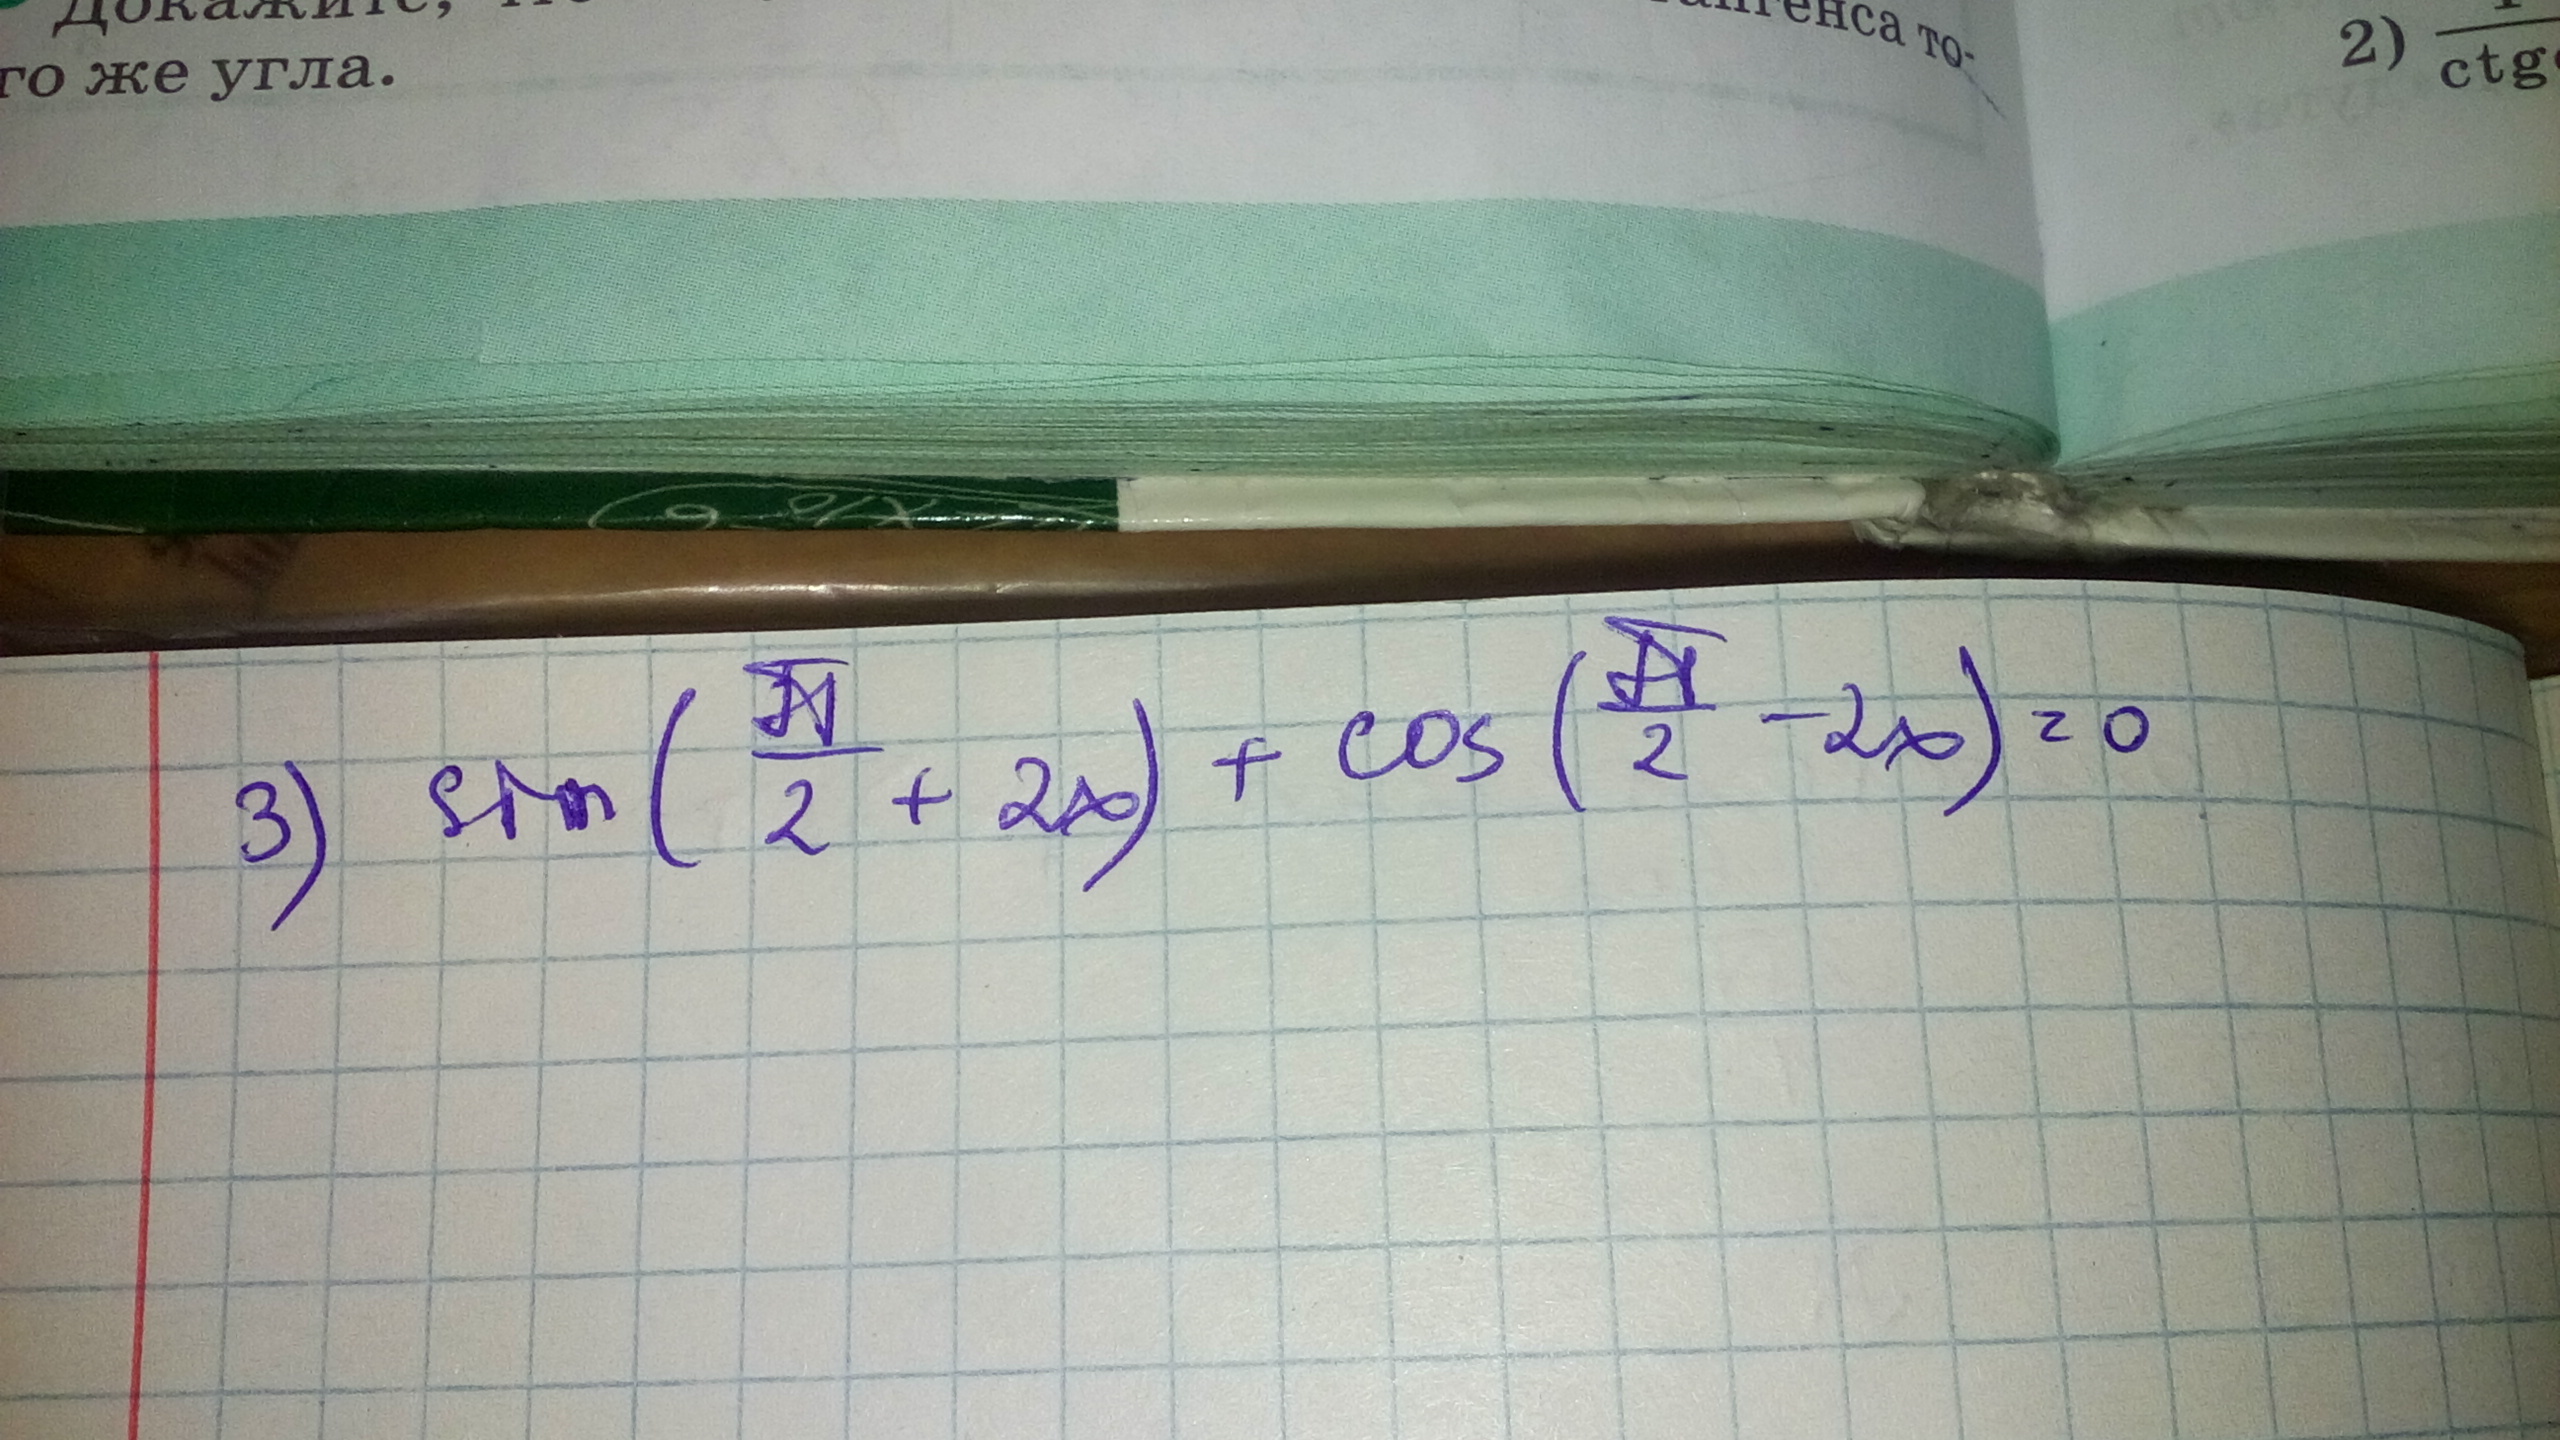 Докажите,
тангенса то-
го же угла.
2) ctg
3) sin(π/2 + 2x) + cos(π/2 - 2x) = 0